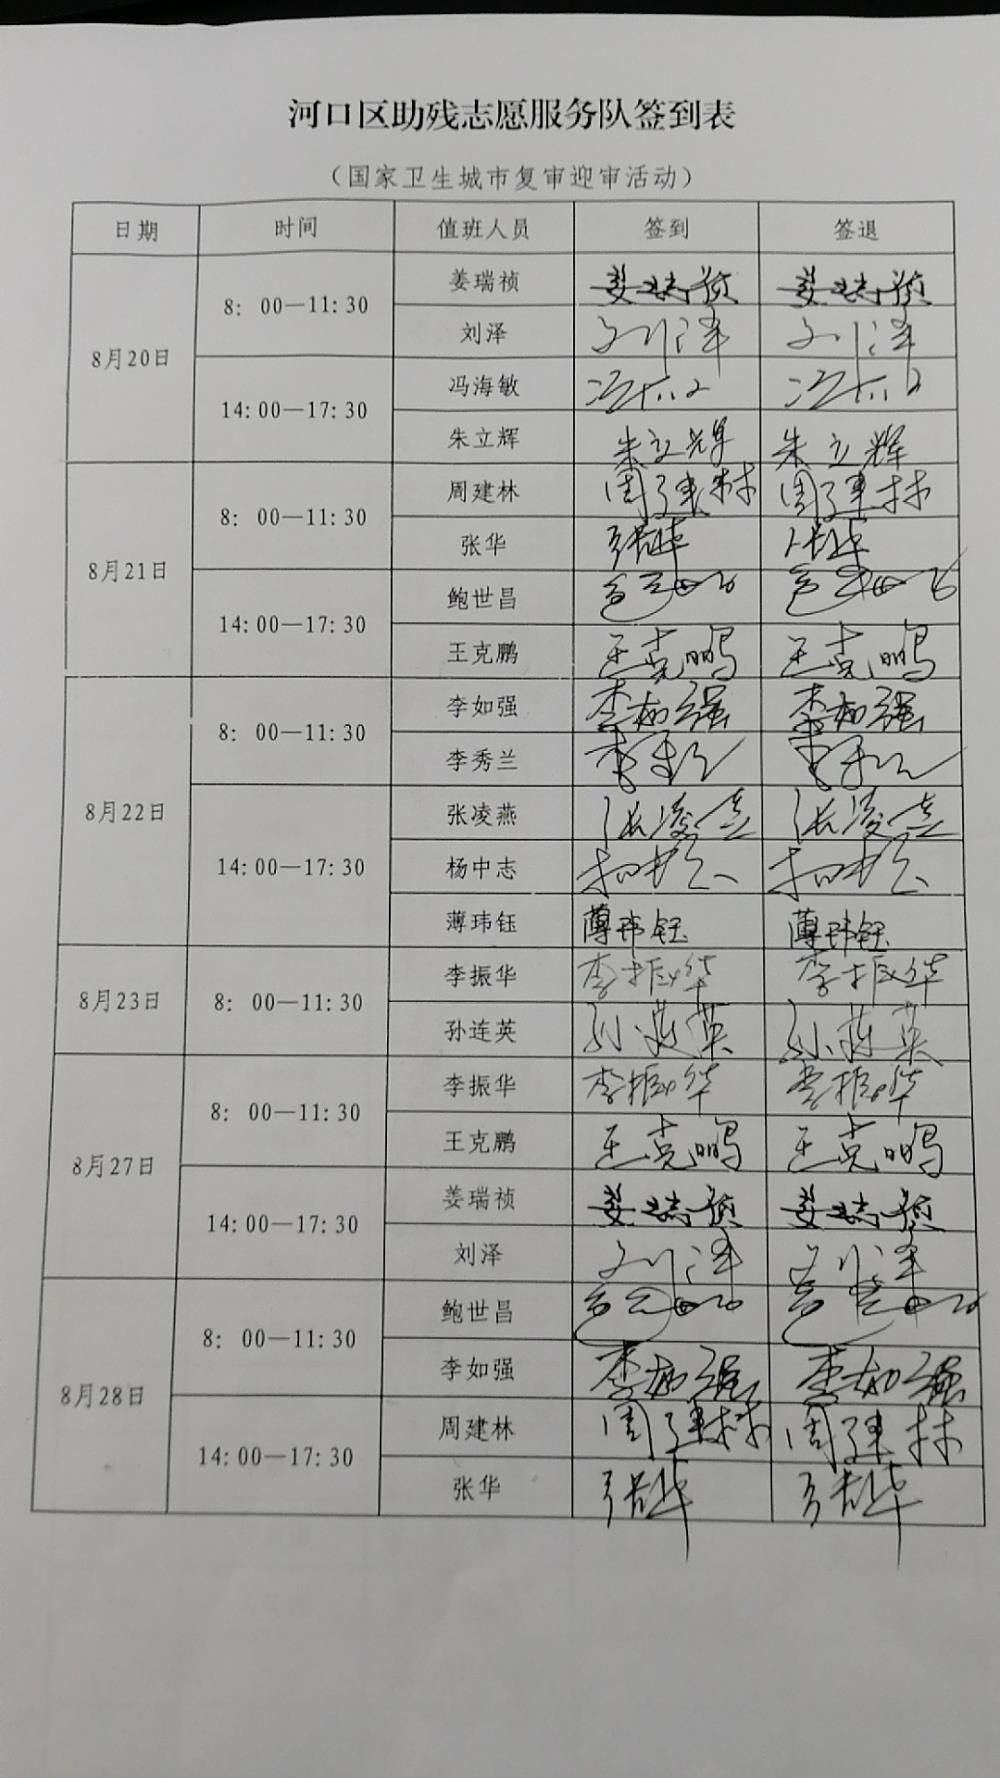 河口区助残志愿服务队签到表
（国家卫生城市复审迎审活动）
日期 时间 值班人员 签到 签退
8月20日 8：00—11:30 姜瑞祯 姜瑞祯 姜瑞祯
刘泽 刘泽 刘泽
14:00—17:30 冯海敏
朱立辉 朱立辉 朱立辉
8月21日 8：00—11:30 周建林 周建林 周建林
张华 张华 张华
14:00—17:30 鲍世昌
王克鹏 王克鹏 王克鹏
8月22日 8：00—11:30 李如强 李如强 李如强
李秀兰 李秀兰 李秀兰
14:00—17:30 张凌燕 张凌燕 张凌燕
杨中志 杨中志 杨中志
薄玮钰 薄玮钰 薄玮钰
8月23日 8：00—11:30 李振华 李振华 李振华
孙连英 孙莲英 孙莲英
8月27日 8：00—11:30 李振华 李振华 李振华
王克鹏 王克鹏 王克鹏
14:00—17:30 姜瑞祯 姜瑞祯 姜瑞祯
刘泽 刘泽 刘泽
8月28日 8：00—11:30 鲍世昌
李如强 李如强 李如强
14:00—17:30 周建林 周建林 周建林
张华 张华 张华